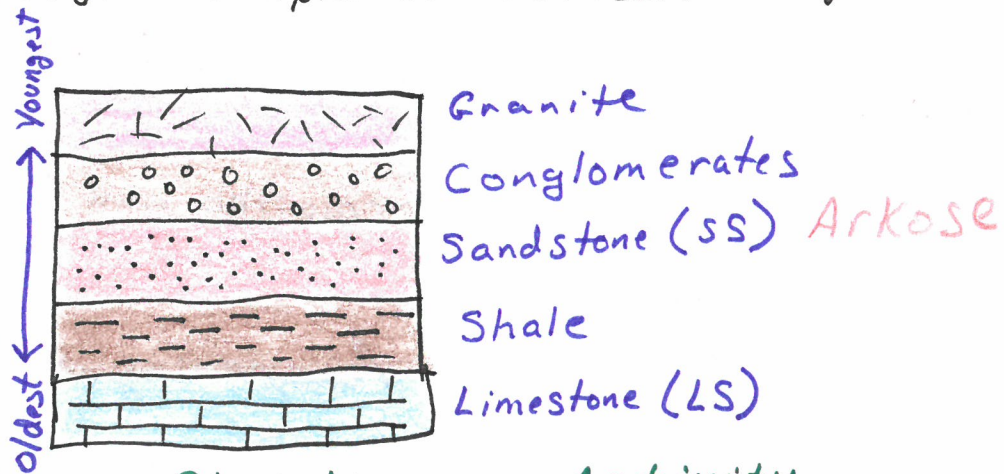 Youngest
Oldest
Granite
Conglomerates
Sandstone (SS) Arkose
Shale
Limestone (LS)